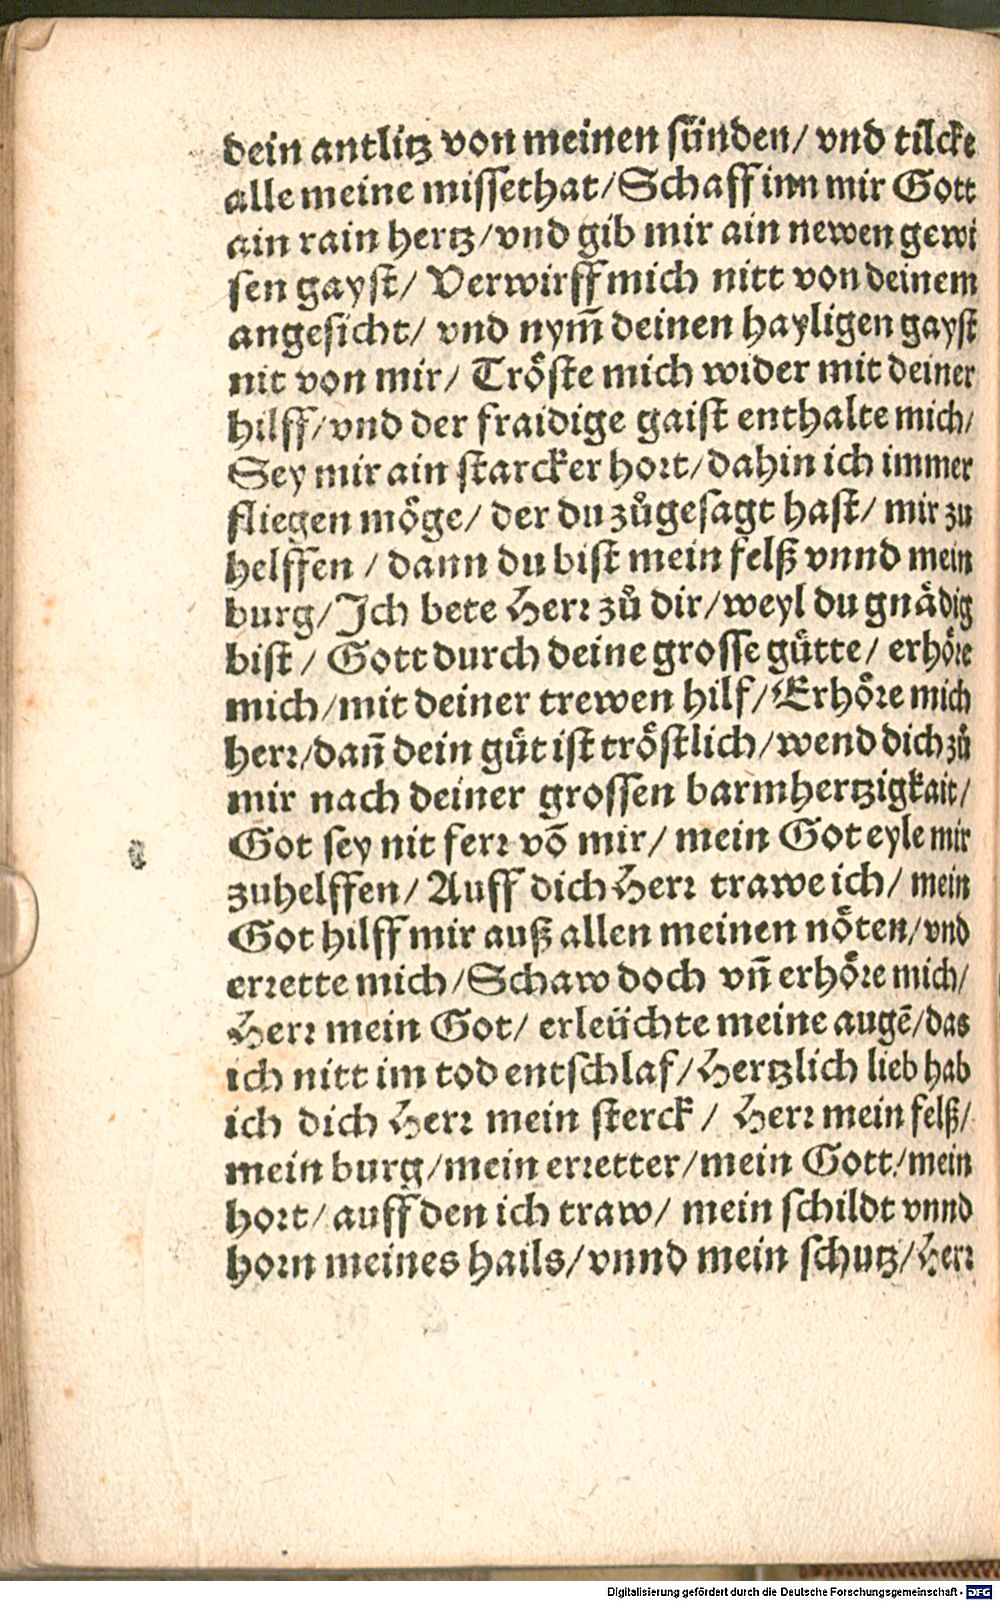 dein antlitz von meinen sünden/ vnd tilcke
alle meine missethat/Schaff inn mir Gott
ain rain hertz/vnd gib mir ain newen gewi
sen gayst/ Verwirff mich nitt von deinem
angesicht/ vnd nym̃ deinen hayligen gayst
nit von mir/ Tröste mich wider mit deiner
hilff/vnd der fraidige gaist enthalte mich/
Sey mir ain starcker hort/dahin ich immer
fliegen möge/ der du zůgesagt hast/ mir zu
helffen / dann du bist mein felß vnnd mein
burg/Ich bete Herr zů dir/weyl du gnädig
bist/ Gott durch deine grosse gütte/ erhöre
mich/mit deiner trewen hilf/Erhöre mich
herr/dañ dein güt ist tröstlich/wend dich zů
mir nach deiner grossen barmhertzigkait/
Got sey nit ferr võ mir/ mein Got eyle mir
zuhelffen/ Auff dich Herr trawe ich/ mein
Got hilff mir auß allen meinen nöten/vnd
errette mich/Schaw doch vñ erhöre mich/
Herr mein Got/ erleüchte meine augẽ/das
ich nitt im tod entschlaf/Hertzlich lieb hab
ich dich Herr mein sterck/ Herr mein felß/
mein burg/mein erretter/mein Gott/mein
hort/auff den ich traw/ mein schildt vnnd
horn meines hails/vnnd mein schutz/Herr
Digitalisierung gefördert durch die Deutsche Forschungsgemeinschaft - DFG